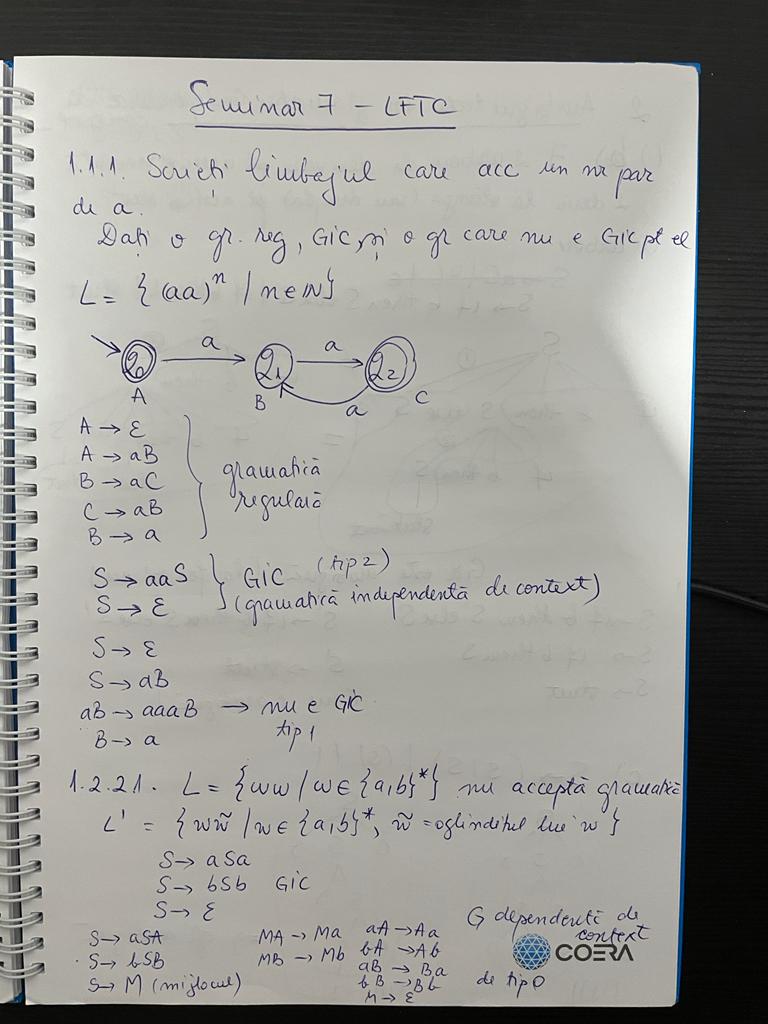 Seminar 7 - LFTC
1.1.1. Scrieți limbajul care acc un nr par
de a.
Dați o gr. reg, GIC, și o gr care nu e GIC pt el
L = { (aa)ⁿ / n∈ℕ}
a a
q₀ q₁ q₂
A B a C
A → ε
A → aB
B → aC
C → aB
B → a
gramatică
regulară
S → aaS
S → ε
GIC (tip 2)
(gramatică independentă de context)
S → ε
S → aB
aB → aaaB → nu e GIC
B → a tip 1
1.2.21. L = {ww / w∈{a,b}*} nu acceptă gramatică
L' = { ww̃ / w∈{a,b}*, w̃ = oglinditul lui w }
S → aSa
S → bSb GIC
S → ε
S → aSA MA → Ma aA → Aa G dependentă de
S → bSB MB → Mb bA → Ab context
S → M (mijlocul) aB → Ba de tip 0
bB → Bb
M → ε
COERA